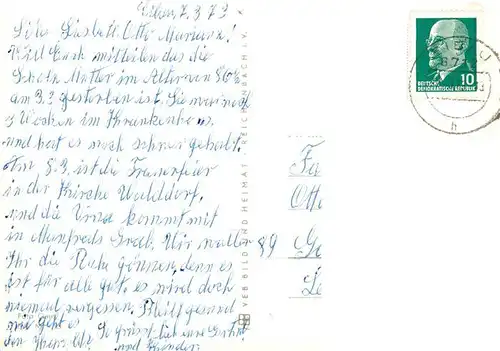 7.3.73
Liebe Liesbett Otto Marianne!
Will Euch mitteilen das die
Mutter im Alter von
am 3.3 gestorben ist. Sie war noch
3 Wochen im Krankenhaus,
und hat es noch schwer gehabt.
Am 8.3. ist die Trauerfeier
in der Kirche Walddorf,
und die Urne kommt mit
in Manfreds Grab. Wir wollen
Ihr die Ruhe gönnen, denn es
ist für alle gut. es wird doch
niemand vergessen. Bleibt gesund
wie geht es
und Kinder
VEB BILD UND HEIMAT REICHENBACH I. V.
DEUTSCHE
DEMOKRATISCHE REPUBLIK
10
h
Fa
Otto
89